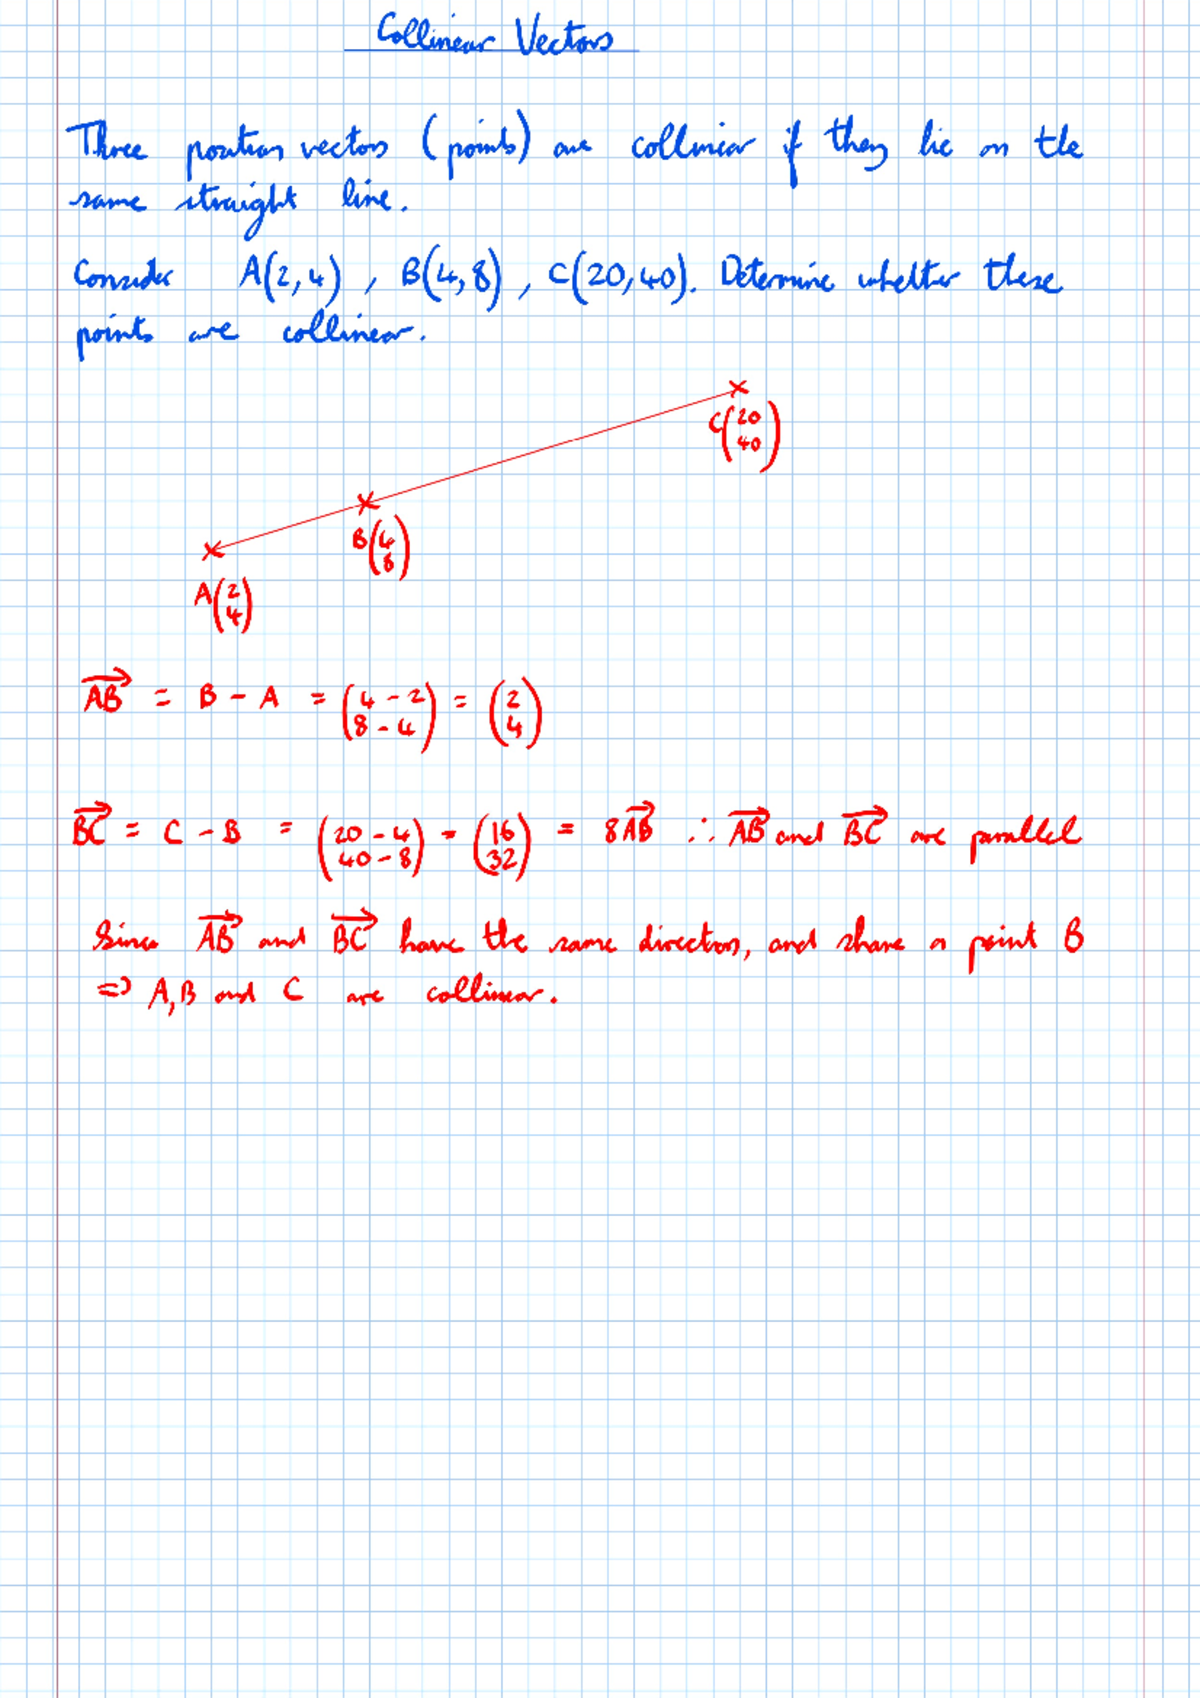 Collinear Vectors
Three position vectors (points) are collinear if they lie on the
same straight line.
Consider A(2,4), B(4,8), C(20,40). Determine whether these
points are collinear.
C(20
40)
B(4
8)
A(2
4)
→AB = B - A = (4 - 2
8 - 4) = (2
4)
→BC = C - B = (20 - 4
40 - 8) = (16
32) = 8→AB ∴ →AB and →BC are parallel
Since →AB and →BC have the same direction, and share a point B
=> A, B and C are collinear.